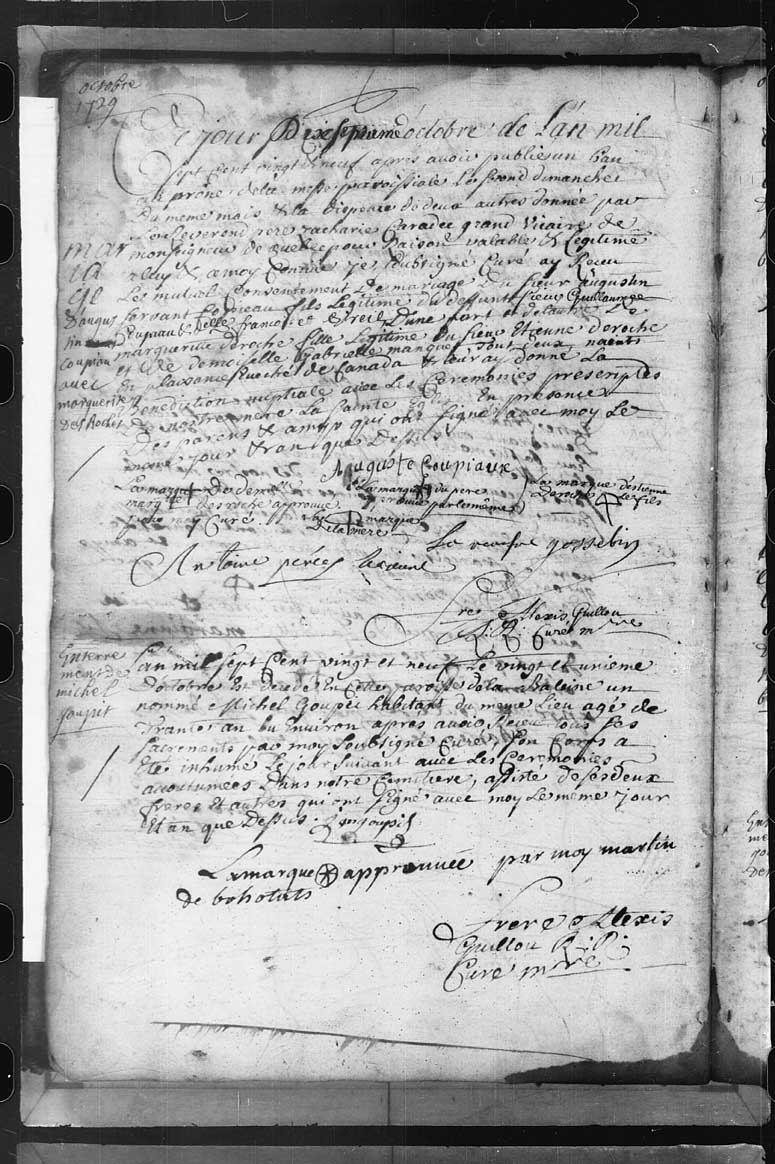 octobre
1729
Ce jour Dixseptieme octobre de L'an mil
Sept Cent vingt et neuf apres avoir publié un ban
au prône de la messe paroissiale Le second dimanche
Du meme mois & la dispence de deux autres donnée par
Le Reverend pere zacharie Caradec grand Vicaire de
monseigneur de quebec pour Raison valables & Legitime
a luy & a moy Connüe je soubsigné Curé ay Receu
Les mutuel Consentement De mariage Du sieur augustin
Coupieau fils Legitime du deffunt sieur Guillaume
Coupieau & delle francoise D'une part et de lautre De
marguerite deroche fille Legitime Du sieur Etienne deroche
et De demoiselle Gabrielle mangeu Tout deux natifs
De plaisance Evéché de Canada & leur ay donné La
Benediction nuptiale avec Les Ceremonies prescriptes
De notre mere La Sainte Eglise En presence
Des parens & amys qui ont signé avec moy Le
meme jour & an que Dessus
mar
ia
ge
D'augus
tin
Coupiau
avec
marguerite
Des Roches
Auguste Coupiaux
La marque De demlle
marg Desroche approuvée
Curé
La marque du pere
approuvée par le même
marque
De la mere
La marque d'estienne
Deroche Le fils
La veufve gosselin
Antoine perée
frere Alexis Guillou
R. P. Curé mre
Enterre
ment de
michel
Goupit
Lan mil sept Cent vingt et neuf Le vingt et unieme
D'octobre Est decedé En Cette paroisse de la Baleine un
nommé Michel Goupée habitant du meme Lieu agé de
Trante an ou Environ apres avoir Receu tous ses
Sacrements par moy soubsigné Curé, son Corps a
Eté inhumé Le jour suivant avec Les Ceremonies
acoutumées Dans notre Cemitiere, assisté de ses deux
freres Et autres qui ont signé avec moy Le meme jour
Et an que Dessus.
La marque approuvée par moy martin
de bohotuts
frere Alexis
Guillou R. P.
Curé mre